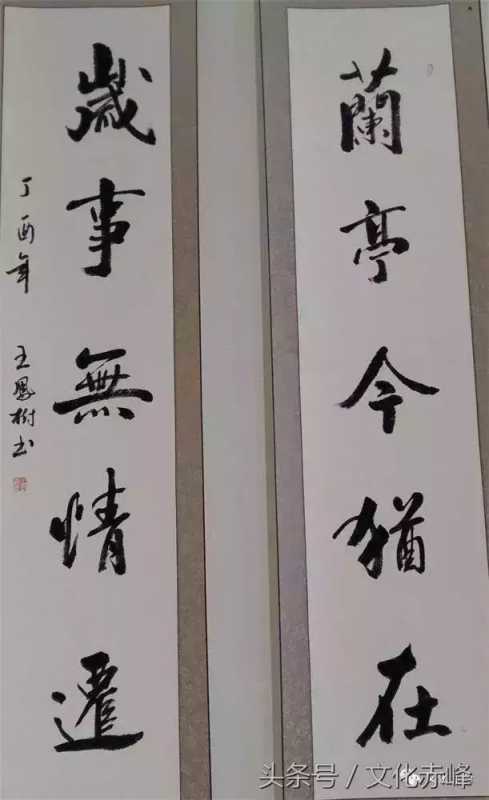 蘭亭今猶在
歲事無情遷
丁酉年 王鳳樹书
头条号／文化赤峰